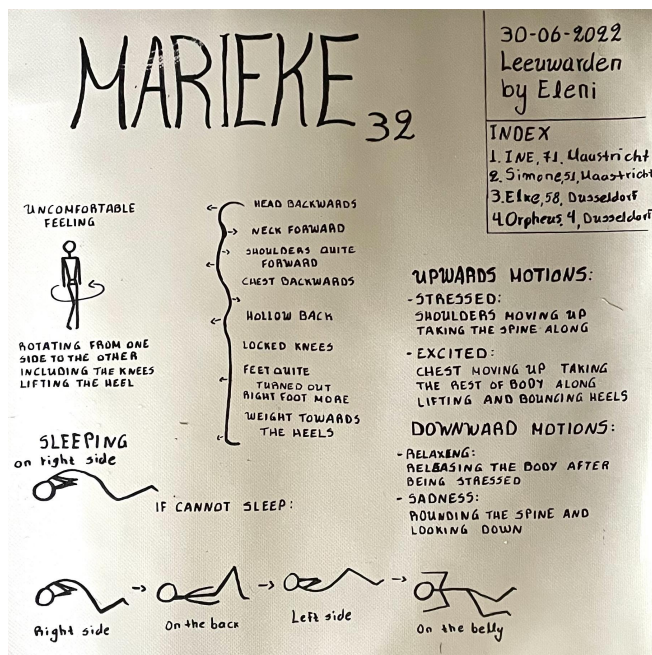 MARIEKE 32
30-06-2022
Leeuwarden
by Eleni
INDEX
1. INE, 71, Maustricht
2. Simone, 51, Maastricht
3. Elke, 58, Dusseldorf
4. Orpheus, 4, Dusseldorf
UNCOMFORTABLE
FEELING
ROTATING FROM ONE
SIDE TO THE OTHER
INCLUDING THE KNEES
LIFTING THE HEEL
HEAD BACKWARDS
NECK FORWARD
SHOULDERS QUITE
FORWARD
CHEST BACKWARDS
HOLLOW BACK
LOCKED KNEES
FEET QUITE
TURNED OUT
RIGHT FOOT MORE
WEIGHT TOWARDS
THE HEELS
UPWARDS MOTIONS:
- STRESSED:
SHOULDERS MOVING UP
TAKING THE SPINE ALONG
- EXCITED:
CHEST MOVING UP TAKING
THE REST OF BODY ALONG
LIFTING AND BOUNCING HEELS
DOWNWARD MOTIONS:
- RELAXING:
RELEASING THE BODY AFTER
BEING STRESSED
- SADNESS:
ROUNDING THE SPINE AND
LOOKING DOWN
SLEEPING
on right side
IF CANNOT SLEEP:
Right side
On the back
Left side
On the belly